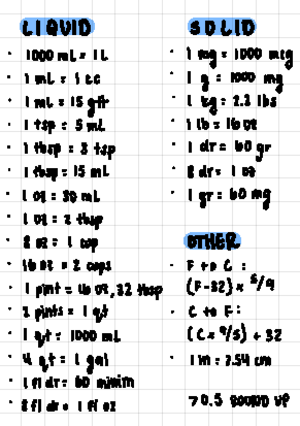 LIQUID
• 1000 mL = 1L
• 1 mL = 1 cc
• 1 mL = 15 gtt
• 1 tsp = 5 mL
• 1 tbsp = 3 tsp
• 1 tbsp = 15 mL
• 1 oz = 30 mL
• 1 oz = 2 tbsp
• 8 oz = 1 cup
• 16 oz = 2 cups
• 1 pint = 16 oz, 32 tbsp
• 2 pints = 1 qt
• 1 qt = 1000 mL
• 4 qt = 1 gal
• 1 fl dr = 60 minim
• 8 fl dr = 1 fl oz
SOLID
• 1 mg = 1000 mcg
• 1 g = 1000 mg
• 1 kg = 2.2 lbs
• 1 lb = 16 oz
• 1 dr = 60 gr
• 8 dr = 1 oz
• 1 gr = 60 mg
OTHER
• F to C :
(F-32) x 5/9
• C to F :
(C x 9/5) + 32
• 1 in = 2.54 cm
>0.5 ROUND UP